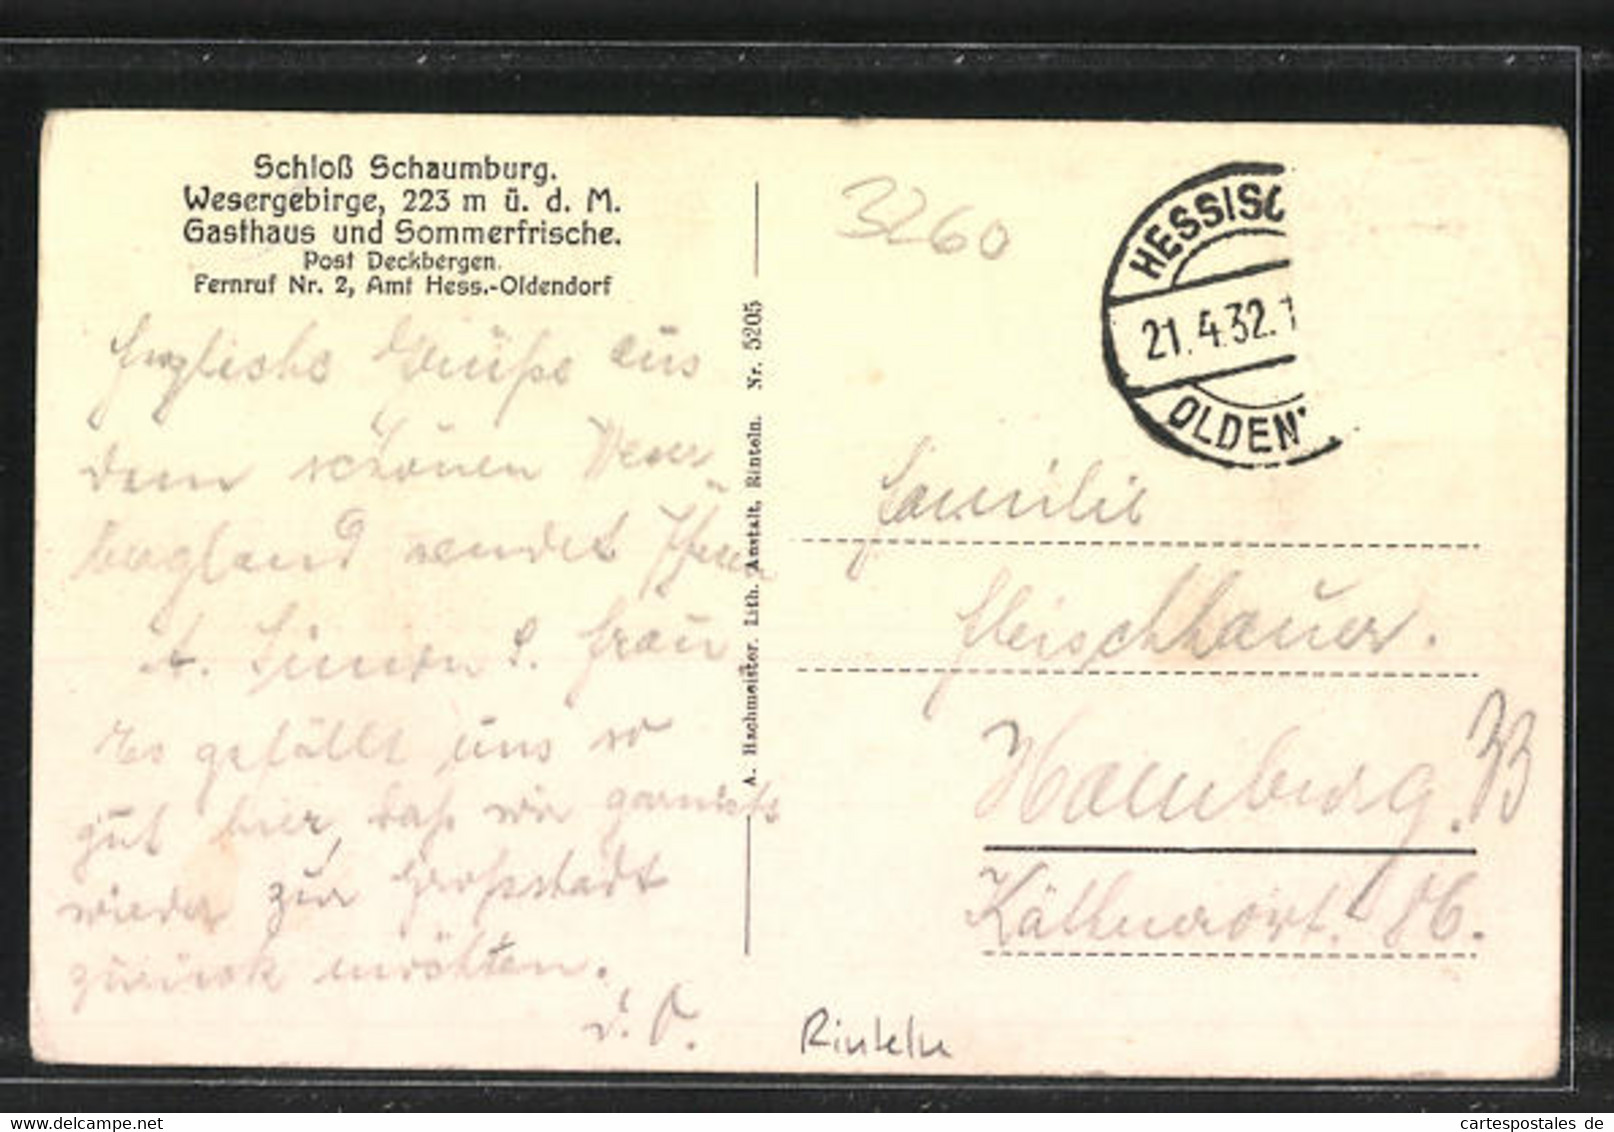 Schloß Schaumburg.
Wesergebirge, 223 m ü. d. M.
Gasthaus und Sommerfrische.
Post Deckbergen.
Fernruf Nr. 2, Amt Hess.-Oldendorf
Grüße aus
dem schönen Weser-
bergland sendet Ihnen
A. Simon u. Frau
Es gefällt uns so
gut hier, daß wir garnicht
wieder zur Großstadt
zurück möchten.
D. O.
A. Hachmeister, Lith. Anstalt, Rinteln. Nr. 5205
3260
HESSISC
21.4.32.1
OLDEN
Familie
Fleischhauer.
Hamburg. 33
Käthnerort. 56.
Rinteln
cartespostales de